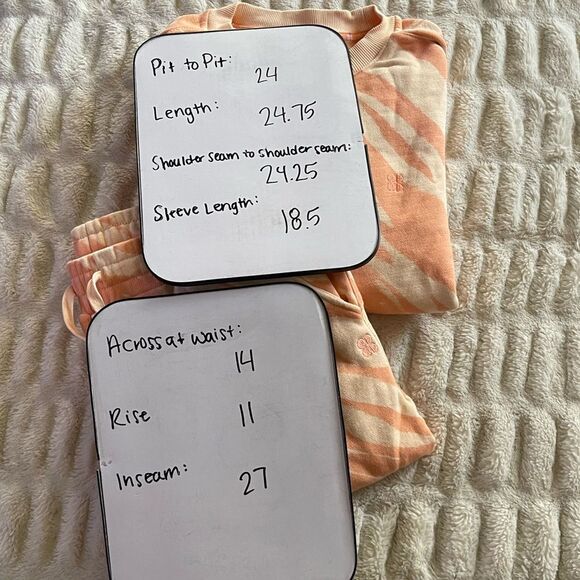 Pit to Pit:
24
Length:
24.75
Shoulder seam to shoulder seam:
24.25
Sleeve Length:
18.5
Across at waist:
14
Rise
11
Inseam:
27